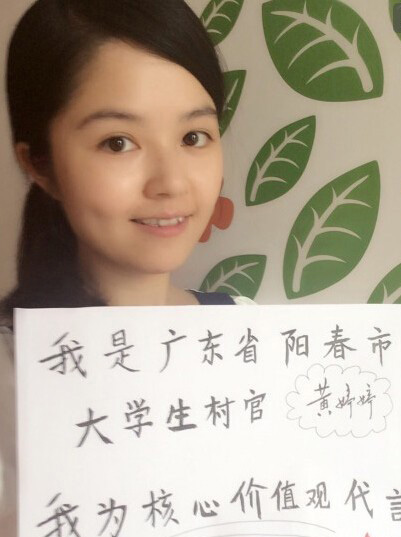 我是广东省阳春市
大学生村官 黄婷婷
我为核心价值观代言